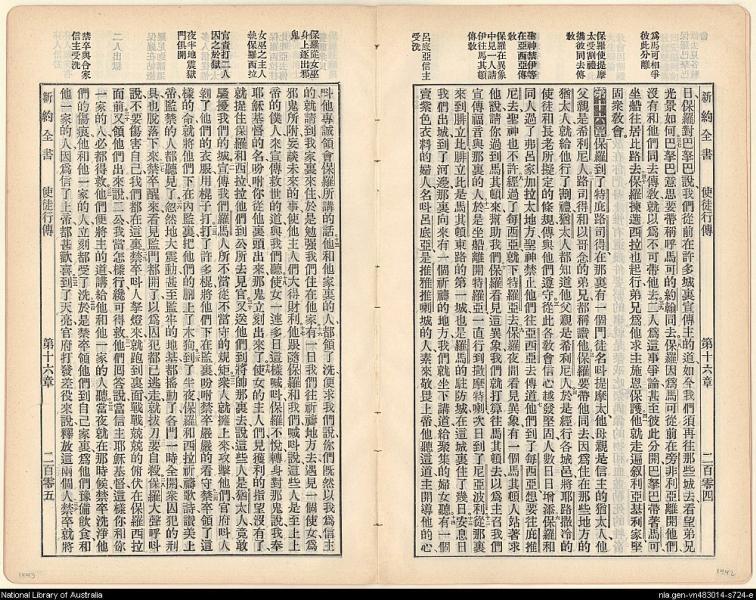 新約全書 使徒行傳 第十六章 二百零四
爲馬可相爭
彼此分離
保羅使提摩
太受割禮
攜彼同去傳
教
聖神禁伊等
在亞西亞傳
保羅在異象
中見人請
伊往馬其頓
傳教
呂底亞信主
受洗
日保羅對巴拏巴說我們從前在許多城裏宣傳主的道如今我們須再往那些城去看望弟兄
光景如何巴拏巴意思要帶稱呼馬可的約翰同去保羅因爲馬可從前在旁非利亞離開他們
沒有和他們同去傳教就以爲不可帶他去二人爲這事爭論甚至彼此分開巴拏巴帶著馬可
坐船往居比路去保羅揀選西拉也起行弟兄爲他求主施恩保護他就走遍叙利亞基利家堅
固衆教會
第十六章 保羅到了特庇路司得在那裏有一個門徒名叫提摩太他母親是信主的猶太人他
父親是希利尼人路司得和以哥念的弟兄都稱讚他保羅要帶他同去因爲住在那些地方的
猶太人就給他行了割禮猶太人都知道他父親是希利尼人於是經行各城邑將耶路撒冷的
使徒和長老所擬定的條規傳與他們遵守從此各教會信心越發堅固人數日日增添保羅和
同人過了弗呂家加拉太地方聖神禁止他們往亞西亞去傳道他們到了每西亞想要往庇推
尼去聖神也不許經過了每西亞就下特羅亞去保羅夜間看見異象有一個馬其頓人站著求
他說請你過到馬其頓來幫助我們保羅看見這異象我們就打算往馬其頓去以爲主召我們
宣傳福音與那裏的人於是坐船離開特羅亞一直行到撒摩特喇次日到了尼亞波利從那裏
來到腓立比腓立比此是馬其頓東路的第一城也是羅馬的駐防城在這城裏住了幾日安息日
我們出城到了河邊那裏向來有一個祈禱的地方我們就坐下講道給聚集的婦女聽有一個
賣紫色衣料的婦人名叫呂底亞是推雅推喇城的人素來敬畏上帝他聽這道主開導他的心
新約全書 使徒行傳 第十六章 二百零五
保羅從女巫
身上逐出邪
鬼
女巫之主人
執保羅西拉
官責打二人
囚之於獄
夜半地震獄
門俱開
禁卒與合家
信主受洗
二人出獄
叫他專誠領會保羅所講的話他和他家裏的人都領了洗便求我們說你們既然以我爲信主
的就請到我家裏來住於是勉強我們住在他家有一日我們往祈禱地方去遇見一個使女爲
邪鬼所附妄談未來的事使他主人們大得財利他跟隨保羅和我們喊叫說這些人是至上上
帝的僕人來宣傳救世的道與我們聽使女一連多日這樣喊叫保羅不悅轉身對那鬼說我奉
耶穌基督的名吩咐你從他裏頭出來那鬼立刻出來了使女的主人們見獲利的指望沒有了
就捉住保羅和西拉拉他們到公所去見官又送他們到將帥那裏去說這些人是猶太人竟敢
騷擾我們的城宣傳我們羅馬人所不當從不當守的規矩衆人就擁上來攻擊他們官府叫人
剝了他們的衣服用棍子打打了許多棍將他們下在監裏吩咐禁卒嚴嚴的看守禁卒領了這
樣的命就將他們下在內監裏把他們的腳上了木狗到了半夜保羅和西拉祈禱歌詩讚美上
帝監禁的人都聽見了忽然地大震動甚至監牢的地基都搖動了各門一時全開衆囚犯的刑
具也脫落下來禁卒醒來看見監門都開了以爲囚犯都已逃走就拔刀要自殺保羅大聲呼叫
說不要傷害自己我們都在這裏禁卒叫人拏燈來就跑到裏面戰戰兢兢的俯伏在保羅西拉
面前又領他們出來說二公我當怎樣行纔可得救他們回答說當信主耶穌基督這樣你和你
一家的人必都得救他們便將主的道講給他和他一家的人聽當夜就在那時候禁卒洗淨他
們的傷痕他和他一家的人立刻都受了洗於是禁卒領他們到自己家裏爲他們豫備飲食和
他一家的人因爲信了上帝都甚歡喜到了天亮官府打發差役來說釋放這兩個人禁卒就將
National Library of Australia
nla.gen-vn483014-s724-e